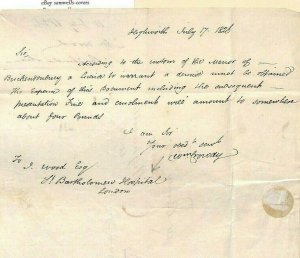 eBay sanwells-covers
July 17. 1826
Sir,
According to the custom of the Manor of
a licence to warrant a demise must be obtained
the expence of this Document including the subsequent
presentation Fees and enrolment will amount to somewhere
about four Pounds
I am Sir
Your obed.t serv.t
To J. Wood Esq.
St Bartholomews Hospital
London